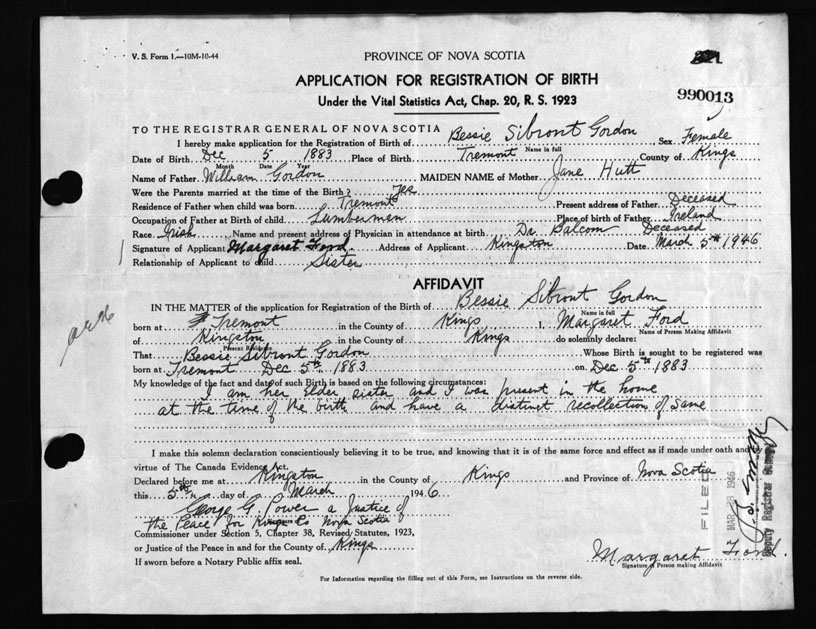 V. S. Form 1.—10M-10-44
PROVINCE OF NOVA SCOTIA
APPLICATION FOR REGISTRATION OF BIRTH
Under the Vital Statistics Act, Chap. 20, R. S. 1923
990013
TO THE REGISTRAR GENERAL OF NOVA SCOTIA
I hereby make application for the Registration of Birth of Bessie Sibront Gordon Sex Female
Name in full
Date of Birth Dec 5 1883 Place of Birth Tremont County of Kings
Month Date Year
Name of Father William Gordon MAIDEN NAME of Mother Jane Hutt
Were the Parents married at the time of the Birth? Yes
Residence of Father when child was born Tremont Present address of Father Deceased
Occupation of Father at Birth of child Lumberman Place of birth of Father Ireland
Race Irish Name and present address of Physician in attendance at birth Dr. Balcom Deceased
Signature of Applicant Margaret Ford. Address of Applicant Kingston Date March 5th 1946
Relationship of Applicant to child Sister
AFFIDAVIT
IN THE MATTER of the application for Registration of the Birth of Bessie Sibront Gordon
Name in full
born at Tremont in the County of Kings I, Margaret Ford
Name of Person Making Affidavit
of Kingston in the County of Kings do solemnly declare:
Present Residence
That Bessie Sibront Gordon Whose Birth is sought to be registered was
born at Tremont Dec 5th 1883 on Dec 5th 1883
My knowledge of the fact and date of such Birth is based on the following circumstances:
I am her Elder sister and I was present in the home
at the time of the birth and have a distinct recollection of same
I make this solemn declaration conscientiously believing it to be true, and knowing that it is of the same force and effect as if made under oath and by
virtue of The Canada Evidence Act.
Declared before me at Kingston in the County of Kings and Province of Nova Scotia
this 5th day of March 1946
George G. Power a Justice of
the Peace for Kings Co Nova Scotia
Commissioner under Section 5, Chapter 38, Revised Statutes, 1923,
or Justice of the Peace in and for the County of Kings
If sworn before a Notary Public affix seal.
Margaret Ford.
Signature of Person making Affidavit
For Information regarding the filling out of this Form, see Instructions on the reverse side.
FILED
MAR 28 1946
Deputy Registrar General